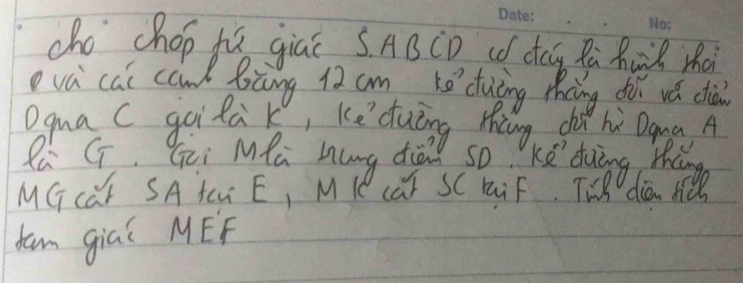 Date: No:
Cho chóp tứ giác S.ABCD có đáy là hình thoi
và các cạnh bằng 12 cm kẻ đường thẳng đối với điểm
D qua C gọi là K, kẻ đường thẳng đối từ D qua A
là G. Gọi M là trung điểm SD. Kẻ đường thẳng
MG cắt SA tại E, MK cắt SC tại F. Tính diện tích
tam giác MEF